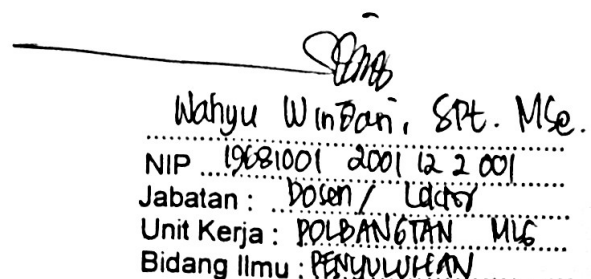 Wahyu Windari, SPt. MSc.
NIP 19681001 2001 12 2 001
Jabatan : Dosen / Lector
Unit Kerja : POLBANGTAN MLG
Bidang Ilmu : PENYULUHAN